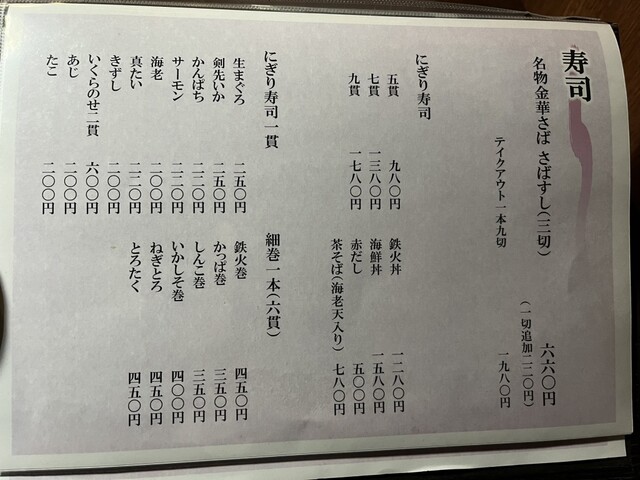 寿司
名物金華さば さばすし(三切) 六六〇円
(一切追加二二〇円)
テイクアウト一本九切 一九八〇円
にぎり寿司
五貫 九八〇円
七貫 一三八〇円
九貫 一七八〇円
鉄火丼 一二八〇円
海鮮丼 一五八〇円
赤だし 五〇〇円
茶そば(海老天入り) 七八〇円
にぎり寿司一貫
生まぐろ 二五〇円
剣先いか 二五〇円
かんぱち 二二〇円
サーモン 二二〇円
海老 二〇〇円
真たい 二二〇円
きずし 二〇〇円
いくらのせ二貫 六〇〇円
あじ 二〇〇円
たこ 二〇〇円
細巻一本(六貫)
鉄火巻 四五〇円
かっぱ巻 三五〇円
しんこ巻 三五〇円
いかしそ巻 四〇〇円
ねぎとろ 四五〇円
とろたく 四五〇円